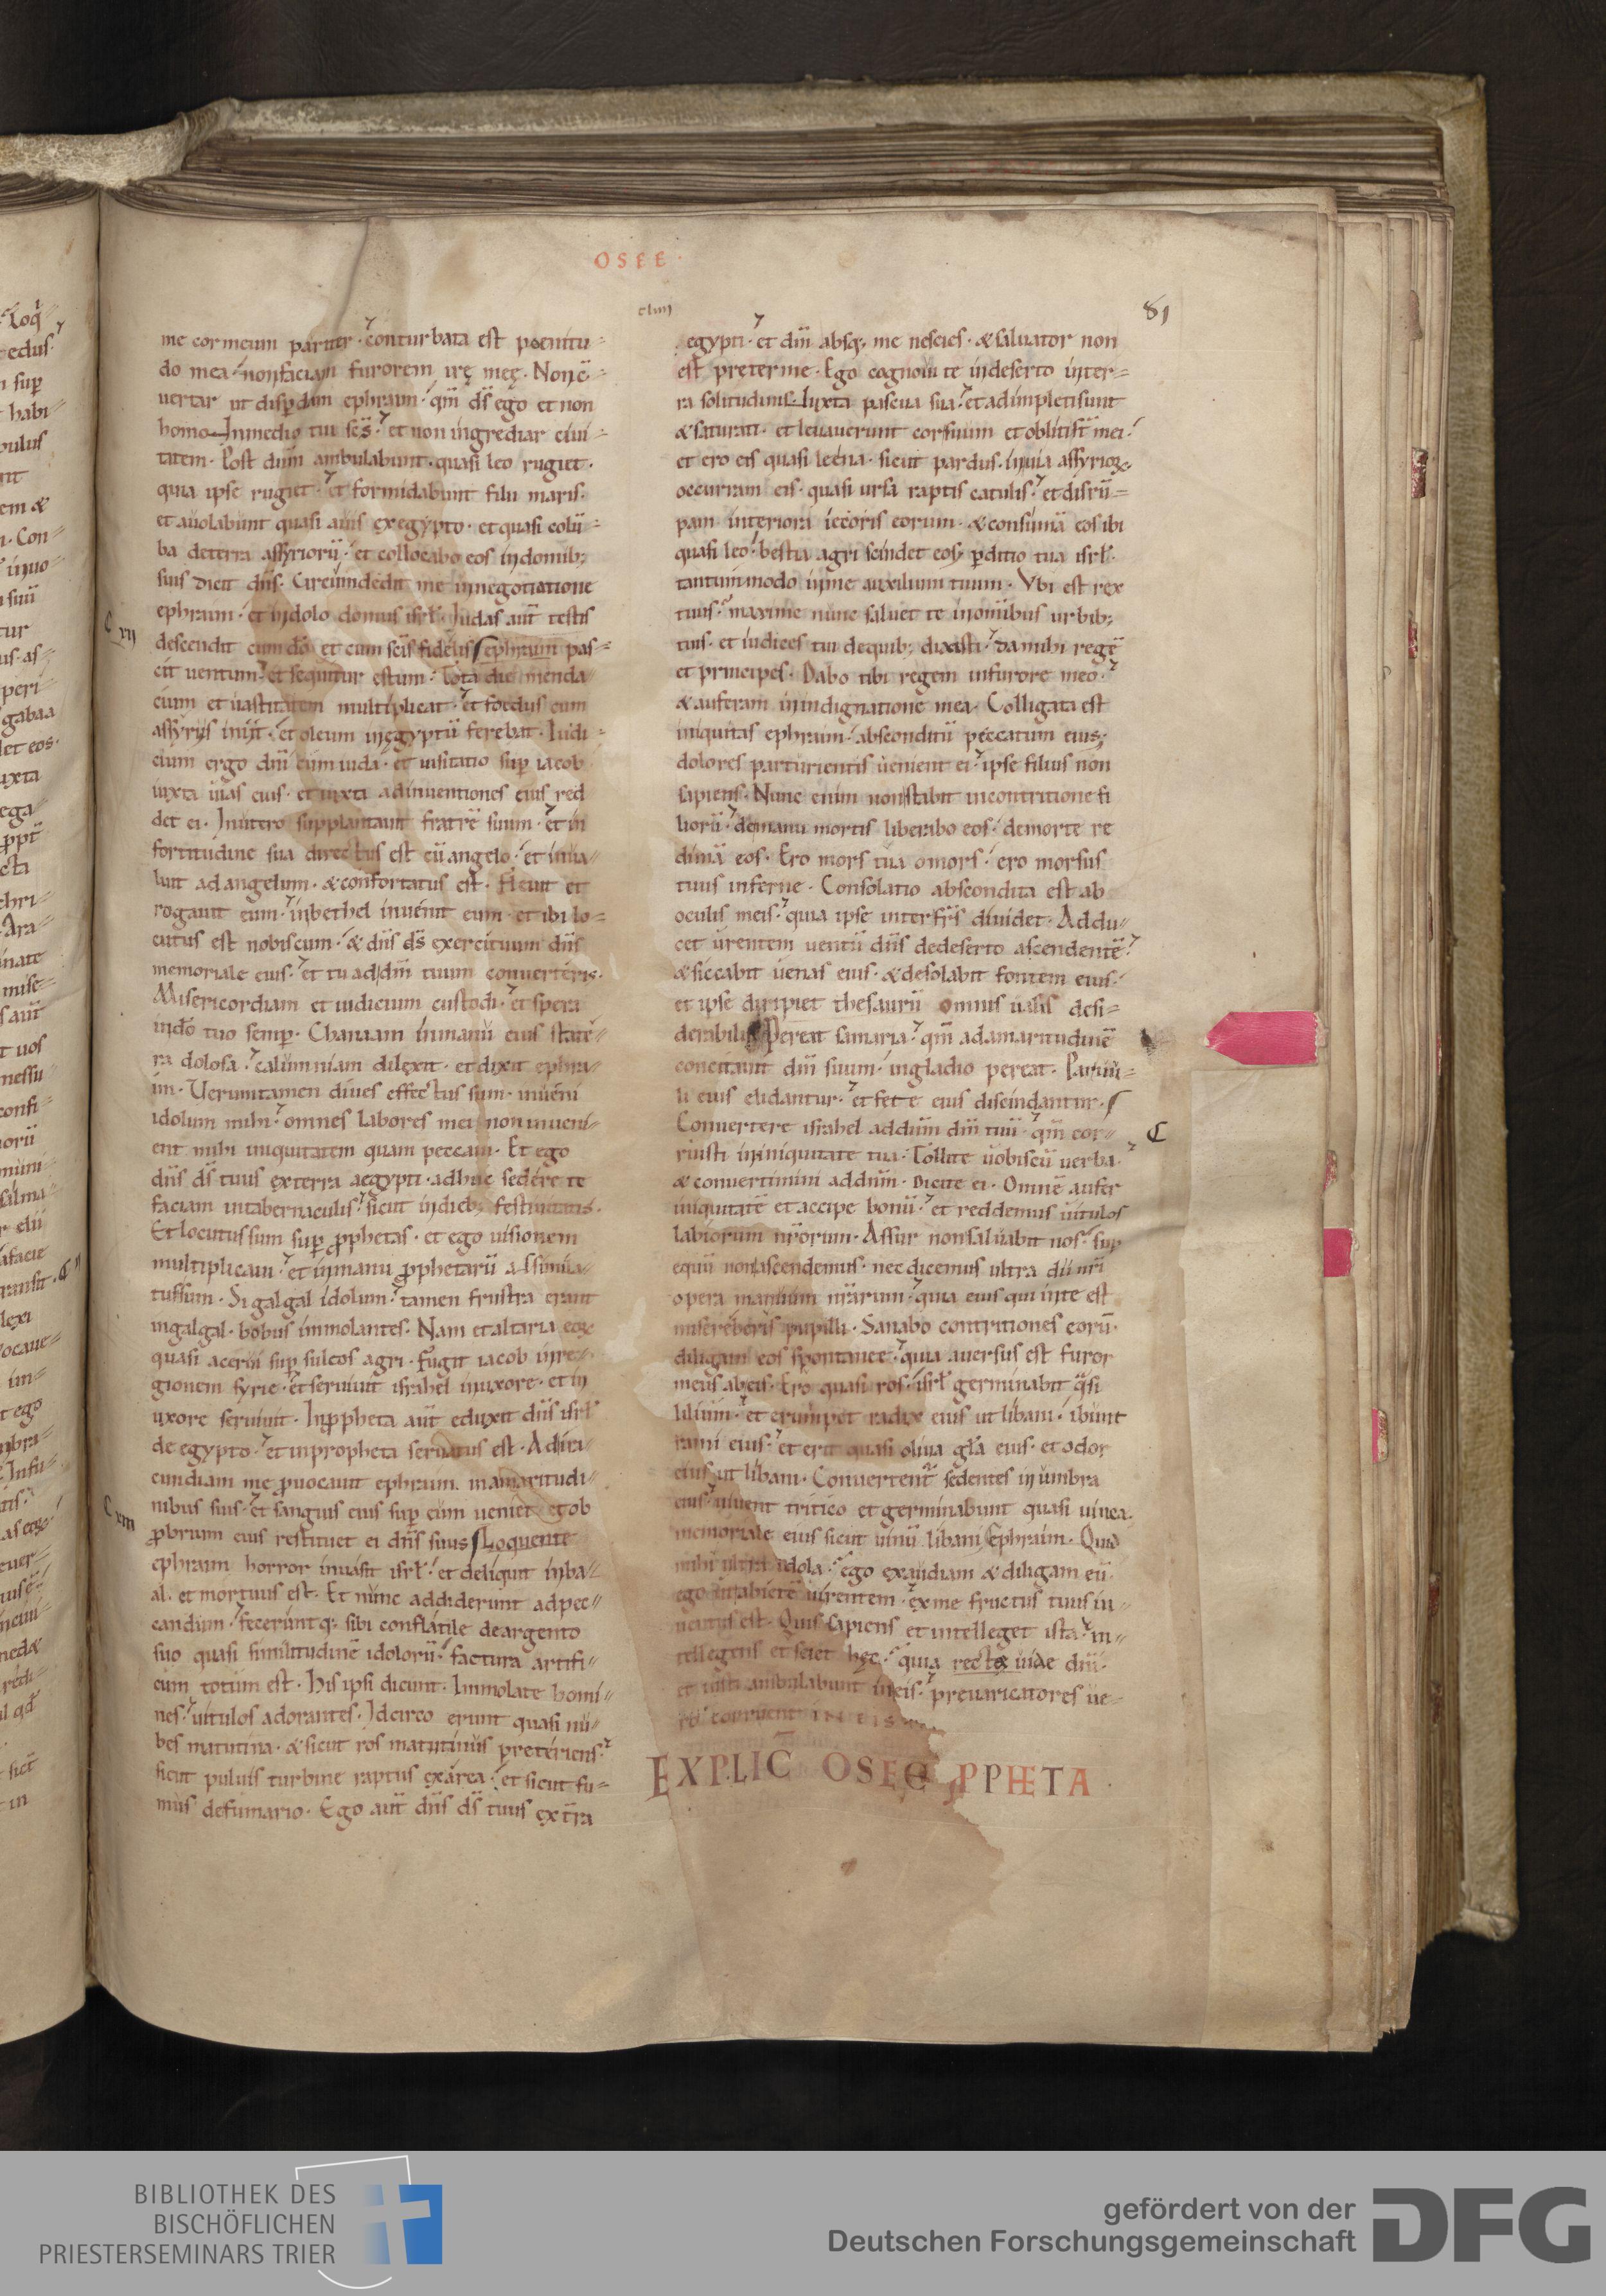 OSEE
cliiii
81
me cor meum pariter · conturbata est poenitu=
do mea · non faciam furorem irę meę · Non cō=
uertar ut disp̄dam ephraim · qm̄ ds̄ ego et non
homo In medio tui sc̄s · et non ingrediar ciui=
tatem · Post dnm̄ ambulabunt · quasi leo rugiet ·
quia ipse rugiet · et formidabunt filii maris ·
et auolabunt quasi auis ex egypto · et quasi colū=
ba de terra assyriorū · et collocabo eos in domib;
suis dicit dn̄s · Circumdedit me in negotiatione
ephraim · et in dolo domus isrl̄ · Iudas aūt testis
C xii
descendit cum dō et cum scīs fidelis Ephraim pas=
cit uentum · et sequitur estum · Tota die menda
cium et uastitatem multiplicat · et foedus cum
assyriis iniit · et oleum in ęgyptū ferebat · Iudi=
cium ergo dnī cum iuda · et uisitatio sup̄ iacob
iuxta uias eius · et iuxta adinuentiones eius red
det ei · In utero supplantauit fratrē suum · et in
fortitudine sua directus est cū angelo · et inua
luit ad angelum · & confortatus est · Fleuit et
rogauit eum · in bethel inuenit eum · et ibi lo=
cutus est nobiscum · & dn̄s ds̄ exercituum dn̄s
memoriale eius · et tu ad dm̄ tuum conuerteris ·
Misericordiam et iudicium custodi · et spera
in dō tuo semp̄ · Chanaam in manu eius state=
ra dolosa · calumniam dilexit · et dixit ephra
im · Uerumtamen diues effectus sum · inueni
idolum mihi · omnes labores mei non inueni
ent mihi iniquitatem quam peccaui · Et ego
dn̄s ds̄ tuus ex terra aegypti · adhuc sedere te
faciam in tabernaculis · sicut in dieb; festiuitatis ·
Et locutus sum sup̄ prophetas · et ego uisionem
multiplicaui · et in manu prophetarū assimila
tus sum · Si galgal idolum · tamen frustra erant
in galgal · bobus immolantes · Nam et altaria eoꝝ
quasi acerui sup̄ sulcos agri · Fugit iacob in re
gionem syrie · et seruiuit israhel in uxore · et in
uxore seruiuit · In propheta aūt eduxit dn̄s isrl̄
de egypto · et in propheta seruatus est · Ad ira
cundiam me prouocauit ephraim in amaritudi
nibus suis · et sanguis eius sup̄ eum ueniet et ob
C xiii
probrium eius restituet ei dn̄s suus Loquente
ephraim horror inuasit isrl̄ · et deliquit in ba
al · et mortuus est · Et nunc addiderunt ad pec
candum · feceruntq; sibi conflatile de argento
suo quasi similitudinē idolorū · factura artifi
cum totum est · His ipsi dicunt · Immolate homi
nes · uitulos adorantes · Idcirco erunt quasi nu
bes matutina · & sicut ros matutinus preteriens ·
sicut puluis turbine raptus ex area · et sicut fu=
mus de fumario · Ego aūt dn̄s ds̄ tuus ex tr̄ra
egypti · et dm̄ absq; me nescies · & saluator non
est preter me · Ego cognoui te in deserto in ter=
ra solitudinis Iuxta pascua sua · et adimpleti sunt
& saturati · et leuauerunt cor suum et obliti sūt mei ·
et ero eis quasi leena · sicut pardus · in uia assyrioꝝ ·
occurram eis · quasi ursa raptis catulis · et disrū=
pam interiora iecoris eorum · & consumā eos ibi
quasi leo · bestia agri scindet eos · p̄ditio tua isrl̄ ·
tantummodo in me auxilium tuum · Vbi est rex
tuus · maxime nunc saluet te in omnibus urbib;
tuis · et iudices tui de quib; dixisti · da mihi regē
et principes · Dabo tibi regem in furore meo ·
& auferam in indignatione mea · Colligata est
iniquitas ephraim · absconditū peccatum eius;
dolores parturientis uenient ei · ipse filius non
sapiens · Nunc enim non stabit in contritione fi
liorū · de manu mortis liberabo eos · de morte re
dimā eos · Ero mors tua o mors · ero morsus
tuus inferne · Consolatio abscondita est ab
oculis meis · quia ipse inter fr̄s diuidet · Addu
cet urentem uentū dn̄s de deserto ascendentē ·
& siccabit uenas eius · & desolabit fontem eius ·
et ipse diripiet thesaurū omnis uasis desi=
derabilis Pereat samaria · qm̄ ad amaritudinē
concitauit dm̄ suum · in gladio pereat · Paruu=
li eius elidantur · et fete eius discindantur ·
C
Conuertere israhel ad dnm̄ dm̄ tuū · qm̄ cor
ruisti in iniquitate tua · Tollite uobiscū uerba ·
& conuertimini ad dnm̄ · Dicite ei · Omnē aufer
iniquitatē et accipe bonū · et reddemus uitulos
labiorum nr̄orum · Assur non saluabit nos · sup̄
equū non ascendemus · nec dicemus ultra dii nr̄i
opera manuum nr̄arum · quia eius qui in te est
misereberis pupilli · Sanabo contritiones eorū ·
diligam eos spontanee · quia auersus est furor
meus ab eis · Ero quasi ros · isrl̄ germinabit q̄si
lilium · et erumpet radix eius ut libani · ibunt
rami eius · et erit quasi oliua glā eius · et odor
eius ut libani · Conuertent̄ sedentes in umbra
eius · uiuent tritico et germinabunt quasi uinea ·
memoriale eius sicut uinū libani Ephraim · Quid
mihi ultra idola · ego exaudiam & diligam eū
ego ut abietē uirentem · ex me fructus tuus in
uentus est · Quis sapiens et intelleget ista · in
tellegens et sciet hęc · quia recte uiae dnī ·
et iusti ambulabunt in eis · preuaricatores ue
ro corruent in eis
EXPLIC OSEE PPHETA
BIBLIOTHEK DES
BISCHÖFLICHEN
PRIESTERSEMINARS TRIER
gefördert von der
Deutschen Forschungsgemeinschaft
DFG